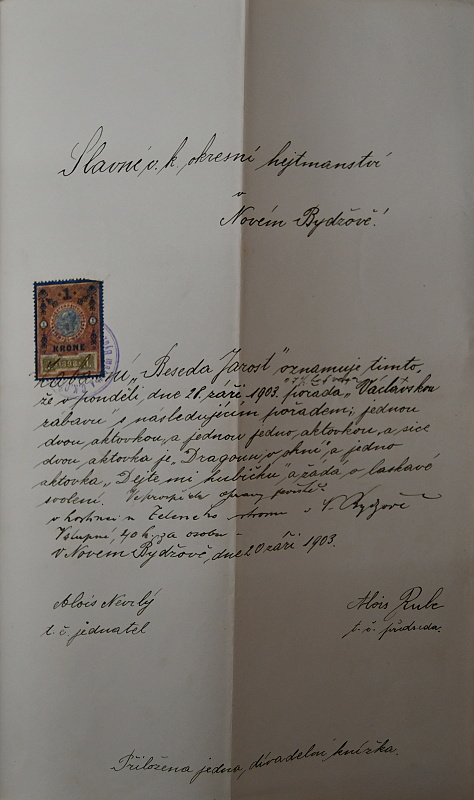 Slavné c. k. okresní hejtmanství
v
Novém Bydžově!
1
KRONE
"Beseda Jarost" oznamuje tímto,
že v pondělí dne 28. září 1903. pořádá "Václavskou
zábavu" s následujícím pořadem; jednou
dvou aktovkou, a jednou jedno, aktovkou, a sice
dvou aktovka je "Dragoun, v ohni", a jedno
aktovka "Dejte mi hubičku" a žádá o laskavé
svolení.
v hostinci u Zeleného stromu v N. Bydžově
Vstupné, 40 h. za osobu
v Novém Bydžově, dne 20 září 1903.
Alois Nevrlý
t. č. jednatel
Alois
t. č. předseda.
Přiložena jedna, divadelní knížka.